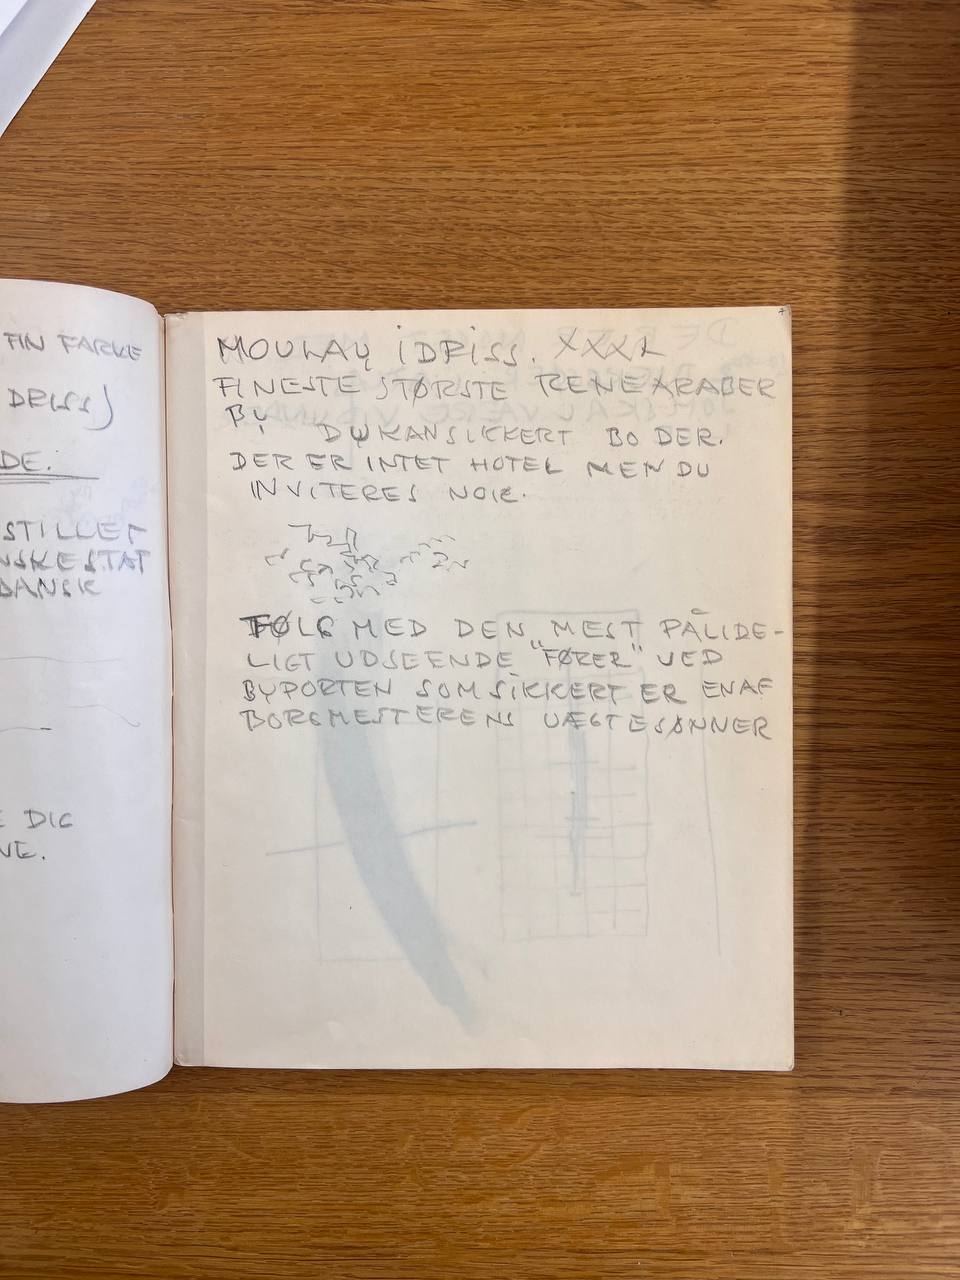 FIN FARKE
DRISS)
DE.
STILLET
NSKE STAT
DANSK
E DIG
NE.
MOULAY IDRISS. XXXX
FINESTE STØRSTE RENE ARABER
BY DU KAN SIKKERT BO DER.
DER ER INTET HOTEL MEN DU
INVITERES NOK.
FØLG MED DEN MEST PÅLIDE-
LIGT UDSEENDE "FØRER" VED
BYPORTEN SOM SIKKERT ER EN AF
BORGMESTERENS UÆGTE SØNNER